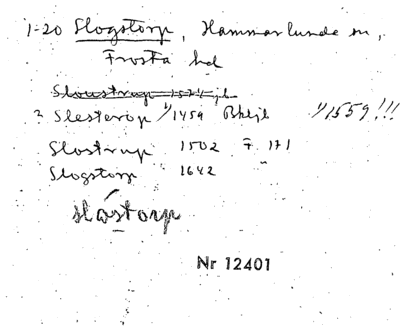 1-20 Slogstorp, Hammarlunda sn,
Frosta hd
Sloustrup 1574 jb
? Slesterop 1/1459 Bhljb 1/1559!!!
Slostrup 1502 F. 171
Slogstorp 1642 "
slåstorp
Nr 12401